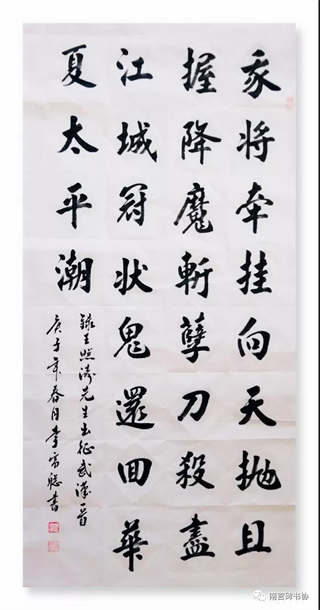 我將牽挂向天抛且
握降魔斬孽刀殺盡
江城冠狀鬼還回華
夏太平潮
錄王照涛先生出征武漢一首
庚子年春月李聪書
南宫碑书协